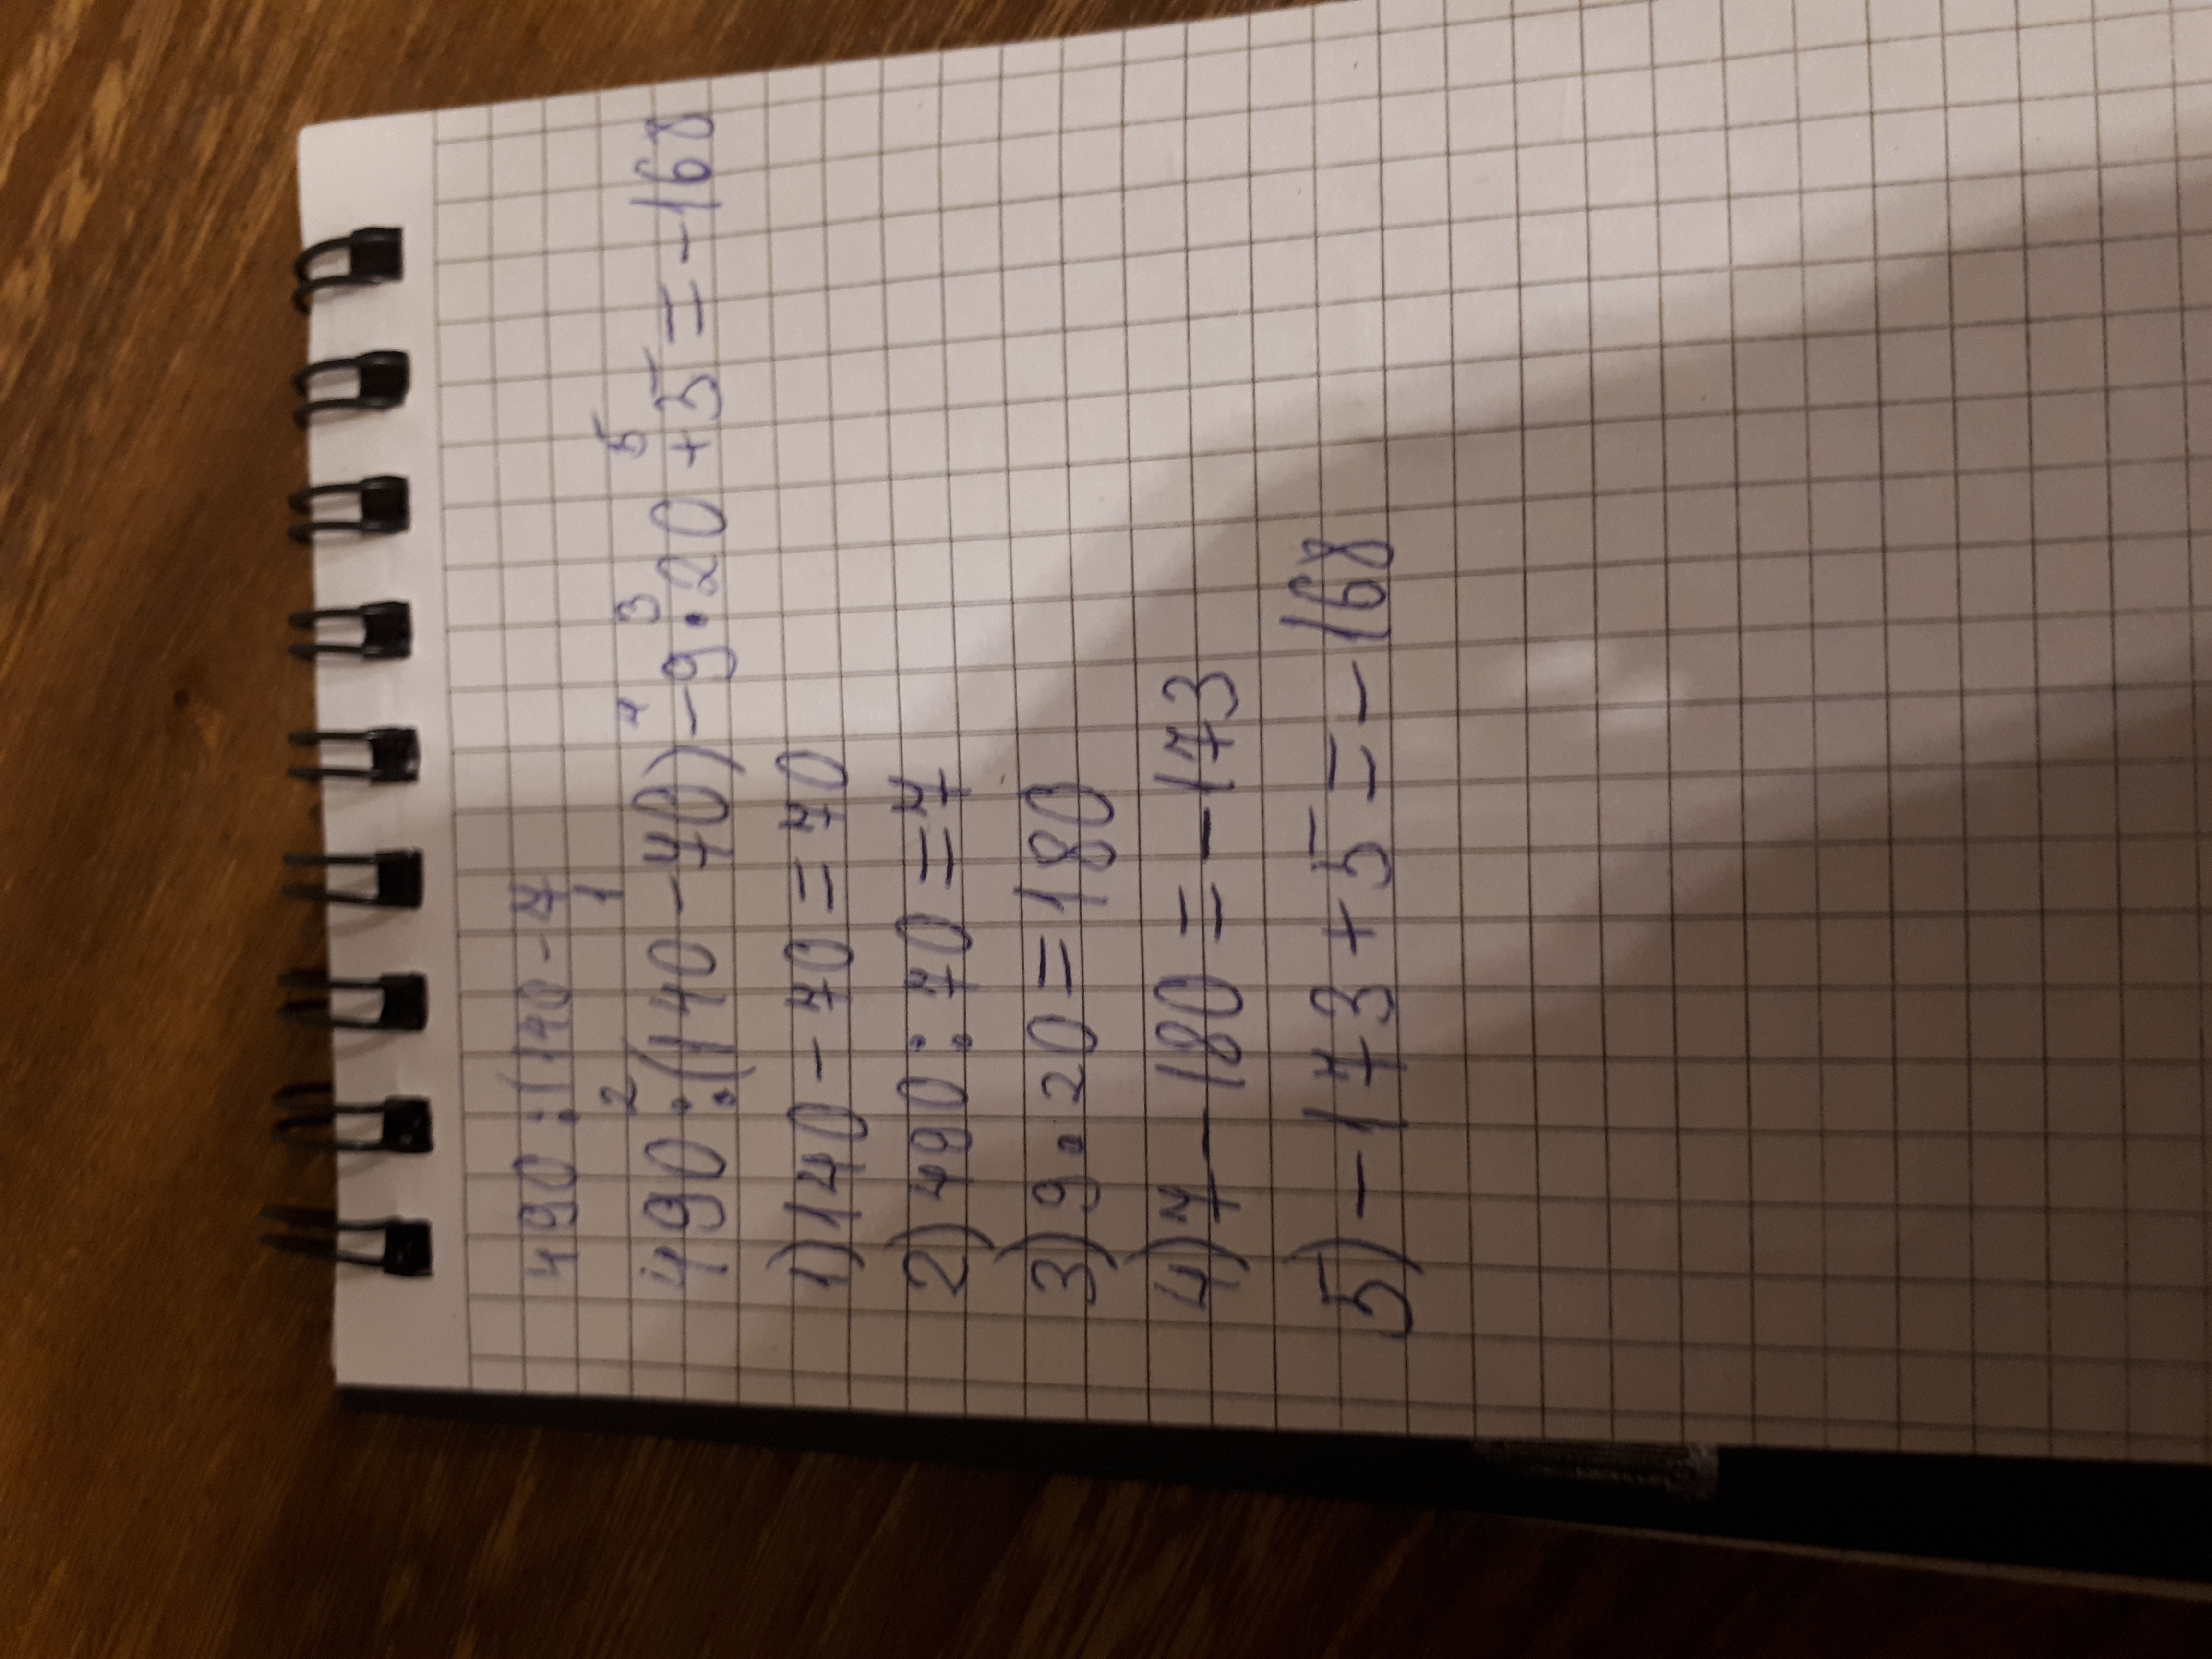 490:(140-7
1
2 4 3 5
490:(140-70)-9·20+5=-168
1)140-70=70
2)490:70=7
3)9·20=180
4)7-180=-173
5)-173+5=-168